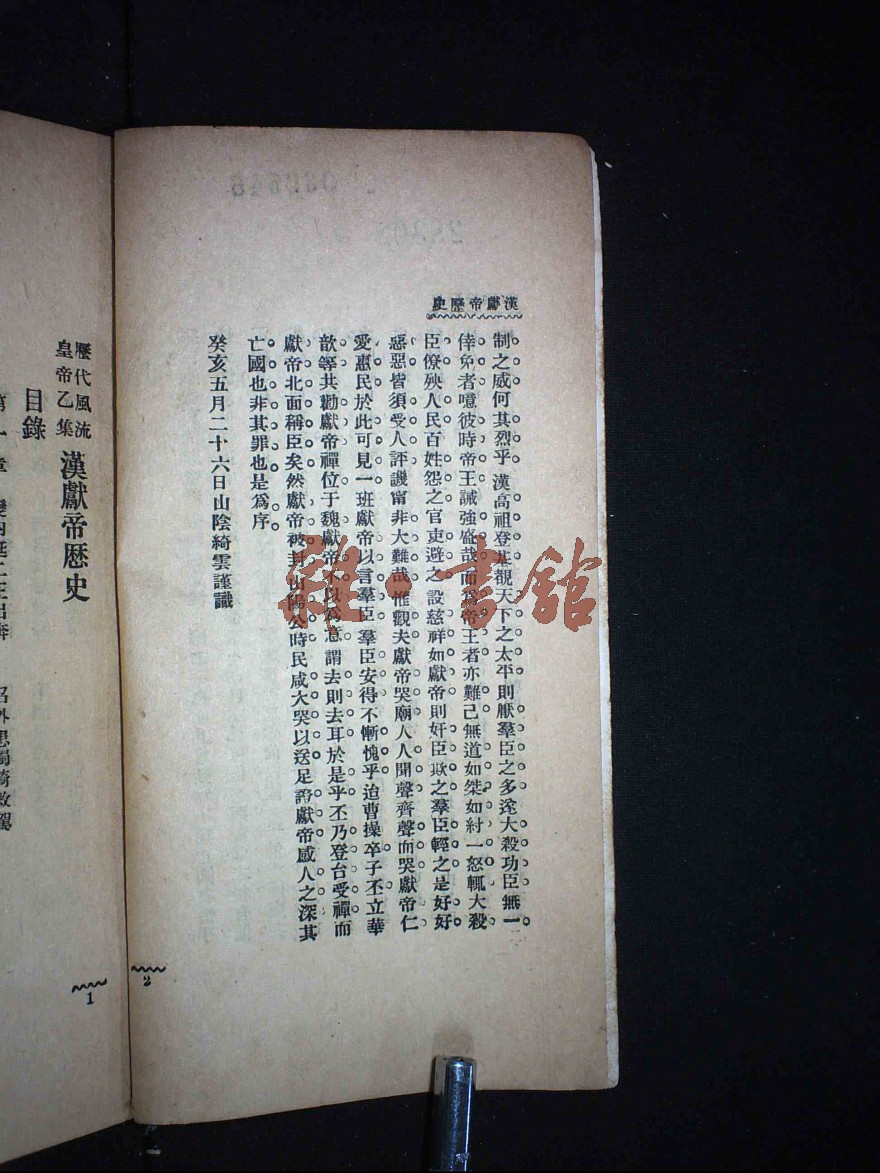 漢獻帝歷史
制之威何其烈乎漢高祖登基覩天下之太平則厭羣臣之多遂大殺功臣無一
倖免者噫彼時帝王誠強盛哉而為帝王者亦難已無道如桀如紂一怒輒大殺
臣僚殃人民百姓怨之官吏避之設慈祥如獻帝則奸臣欺之羣臣輕之是好好
惡惡皆須受人評譏甯非大難哉惟觀夫獻帝哭廟人人聞聲齊聲而哭獻帝仁
愛惠民於此可見一班獻帝以言羣臣羣臣安得不慚愧乎迨曹操卒子丕立華
歆等共勸獻帝禪位于魏獻帝不以為意謂去則去耳於是乎丕乃登台受禪而
獻帝北面稱臣矣然獻帝被封山陽公時民咸大哭以送足證獻帝感人之深其
亡國也非其罪也是為序
癸亥五月二十六日山陰綺雲謹識
2
歷代風流
皇帝乙集
漢獻帝歷史
目錄
第一章
1
雜·書館